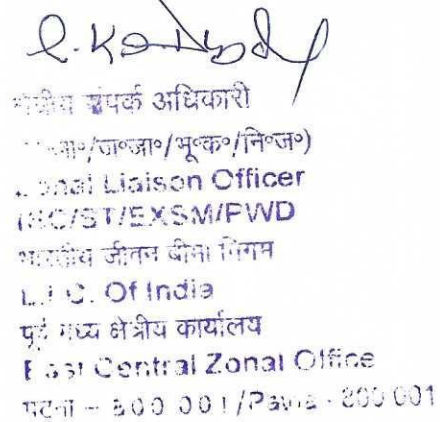 संपर्क अधिकारी
/भू०क०/नि०ज०)
Liaison Officer
/ST/EXSM/PWD
भारतीय जीवन बीमा निगम
L.I.C. Of India
पूर्व मध्य क्षेत्रीय कार्यालय
East Central Zonal Office
पटना - 800 001/Patna - 800 001